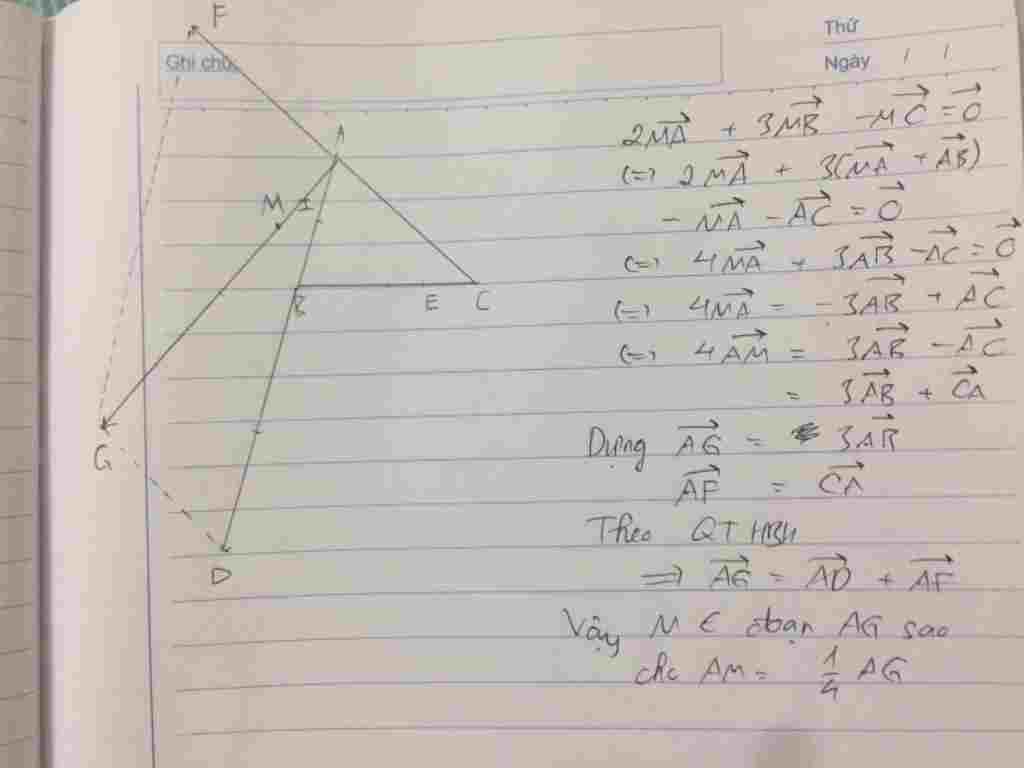 F
Ghi chú:
Thứ
Ngày / /
A
M I
B E C
G
D
2MA⃗ + 3MB⃗ - MC⃗ = 0⃗
(=) 2MA⃗ + 3(MA⃗ + AB⃗)
- MA⃗ - AC⃗ = 0⃗
(=) 4MA⃗ + 3AB⃗ - AC⃗ = 0⃗
(=) 4MA⃗ = -3AB⃗ + AC⃗
(=) 4AM⃗ = 3AB⃗ - AC⃗
= 3AB⃗ + CA⃗
Dựng AG⃗ = 3AB⃗
AF⃗ = CA⃗
Theo QT HBH
=> AG⃗ = AD⃗ + AF⃗
Vậy M ∈ đoạn AG sao
cho AM = 1/4 AG